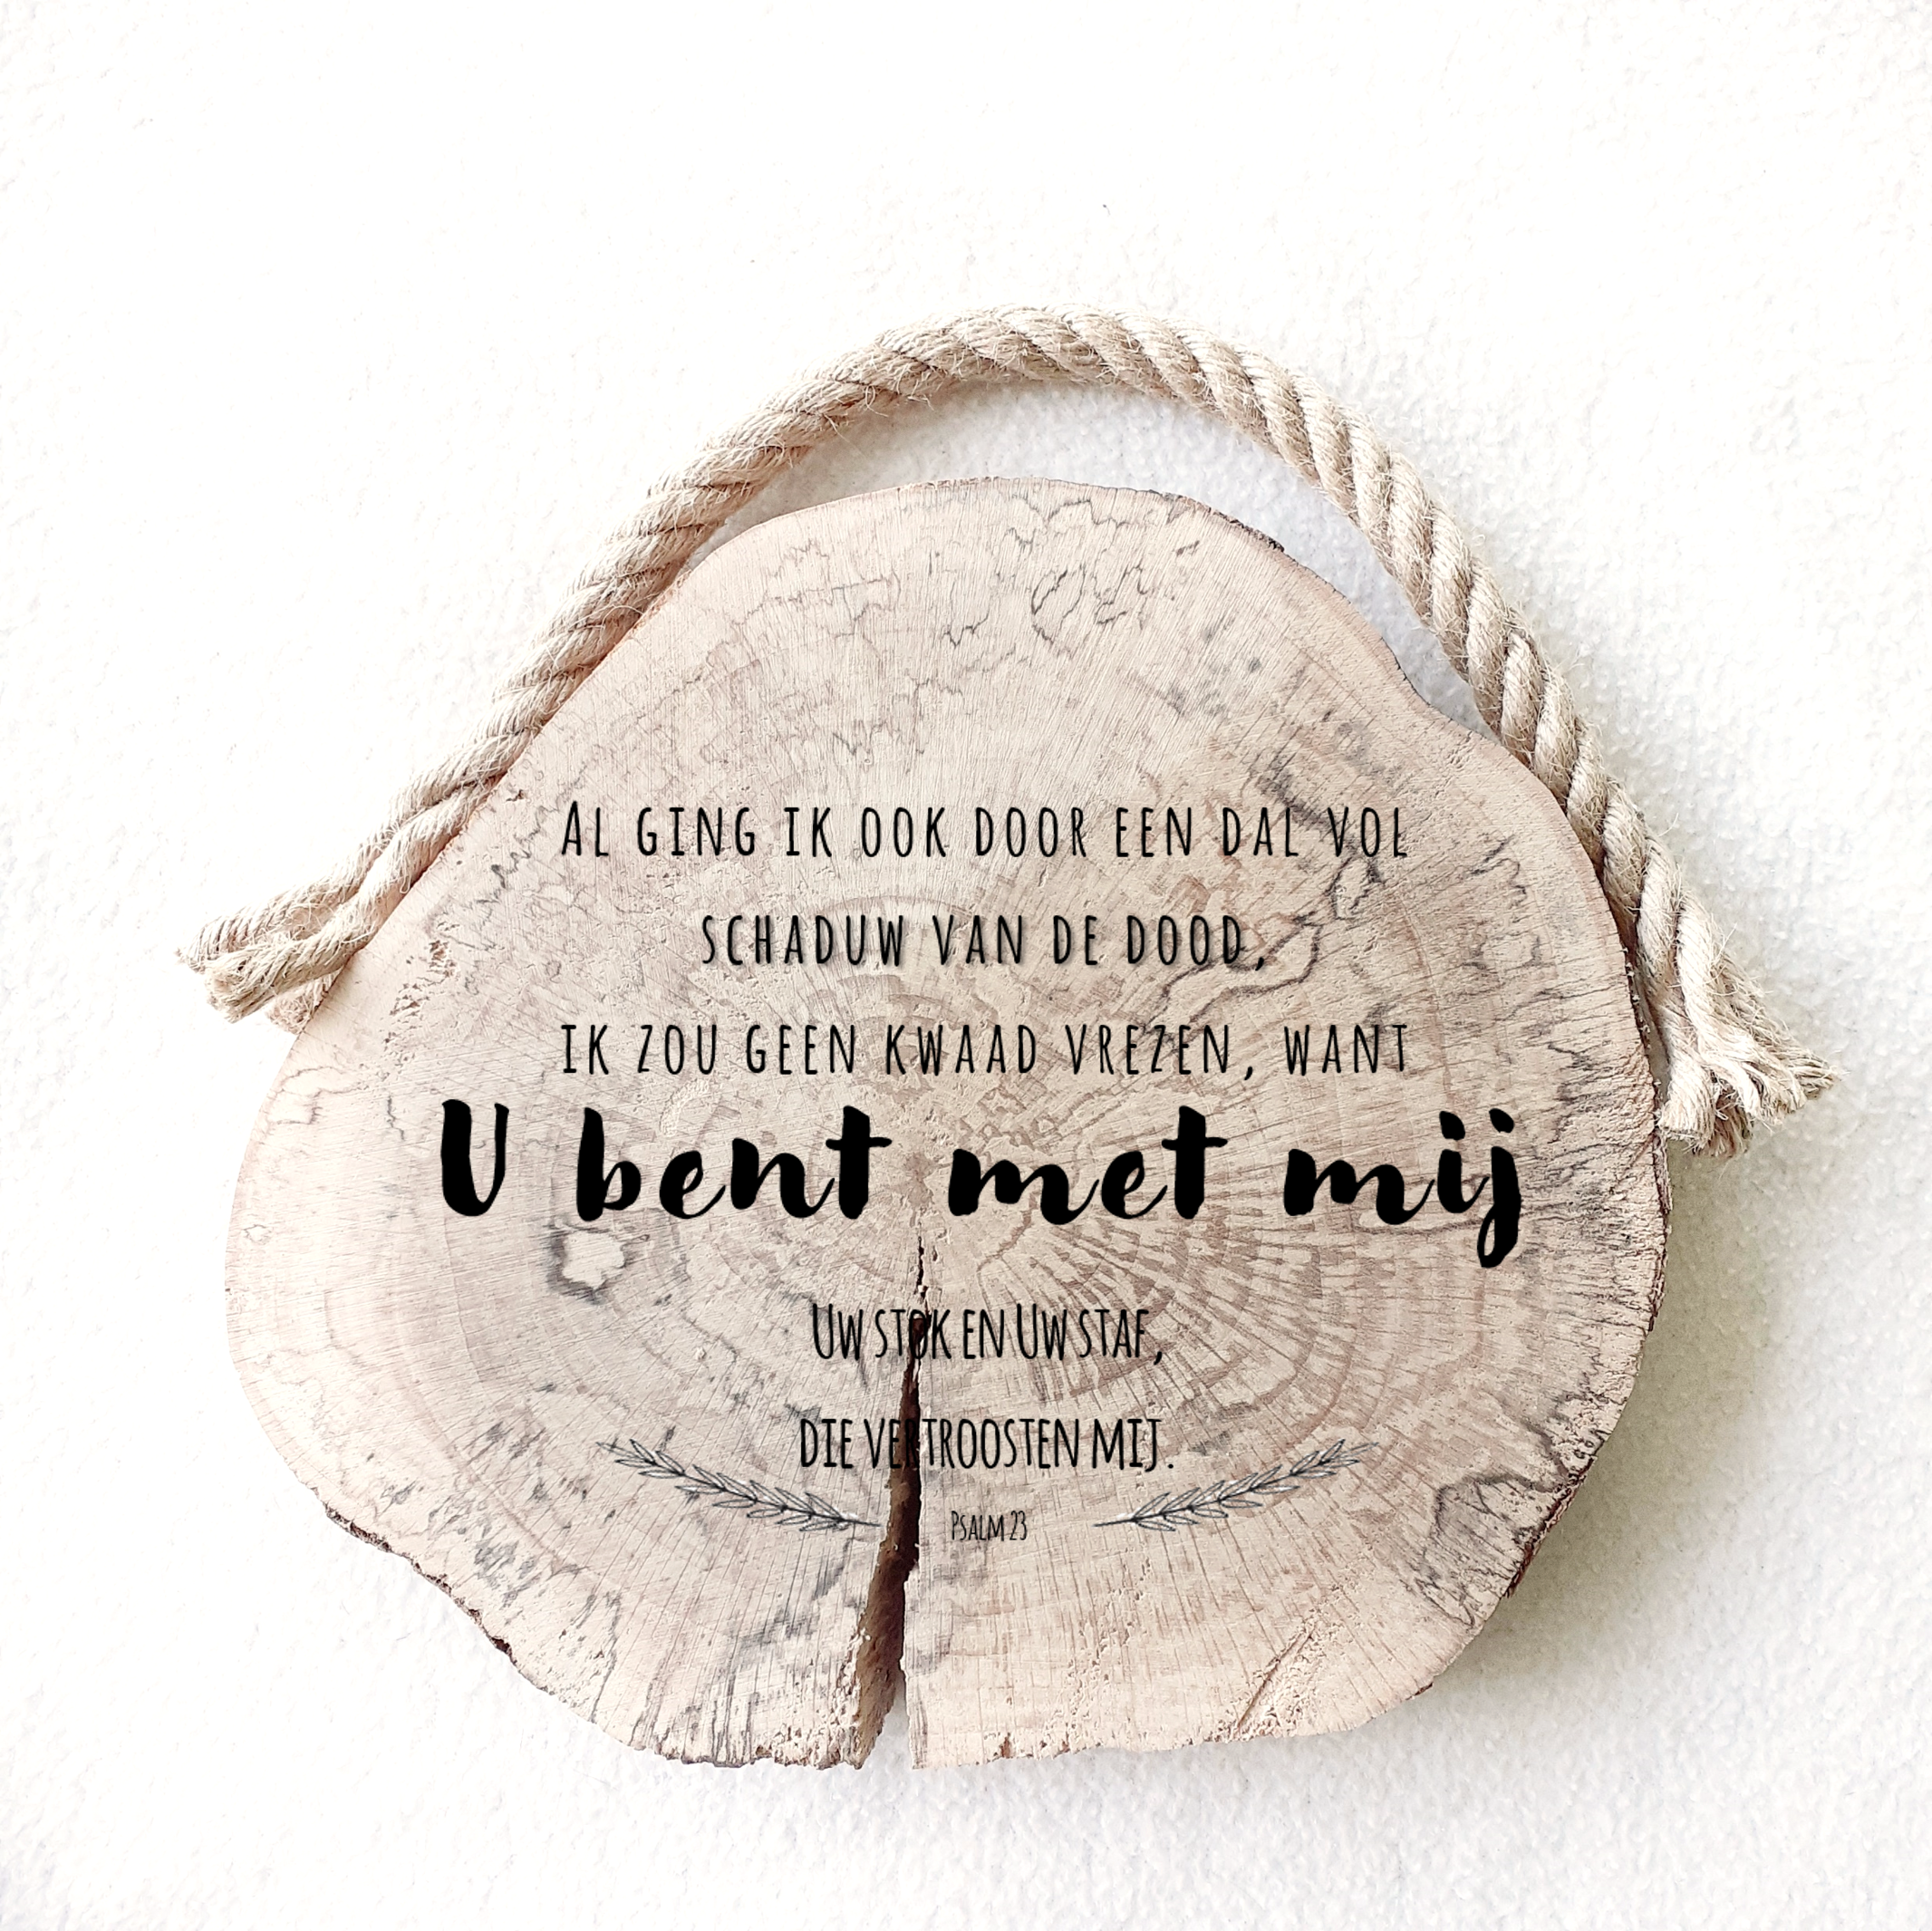 Al ging ik ook door een dal vol
schaduw van de dood,
ik zou geen kwaad vrezen, want
U bent met mij
Uw stok en Uw staf,
die vertroosten mij.
Psalm 23